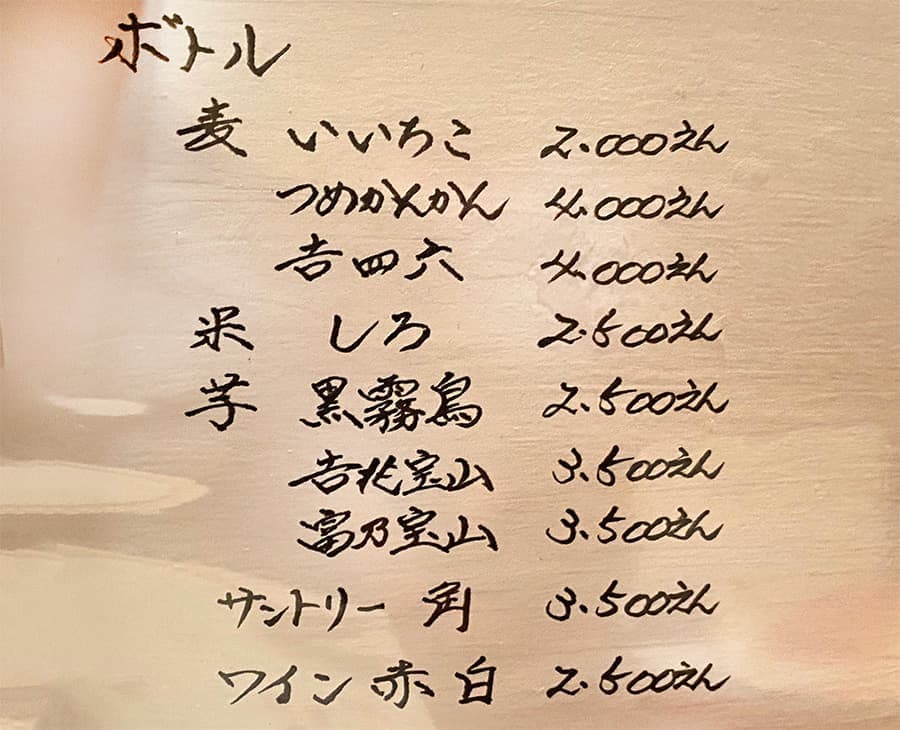 ボトル
麦 いいちこ 2.000えん
つめかんかん 4.000えん
吉四六 4.000えん
米 しろ 2.500えん
芋 黒霧島 2.500えん
吉兆宝山 3.500えん
富乃宝山 3.500えん
サントリー 角 3.500えん
ワイン 赤 白 2.500えん